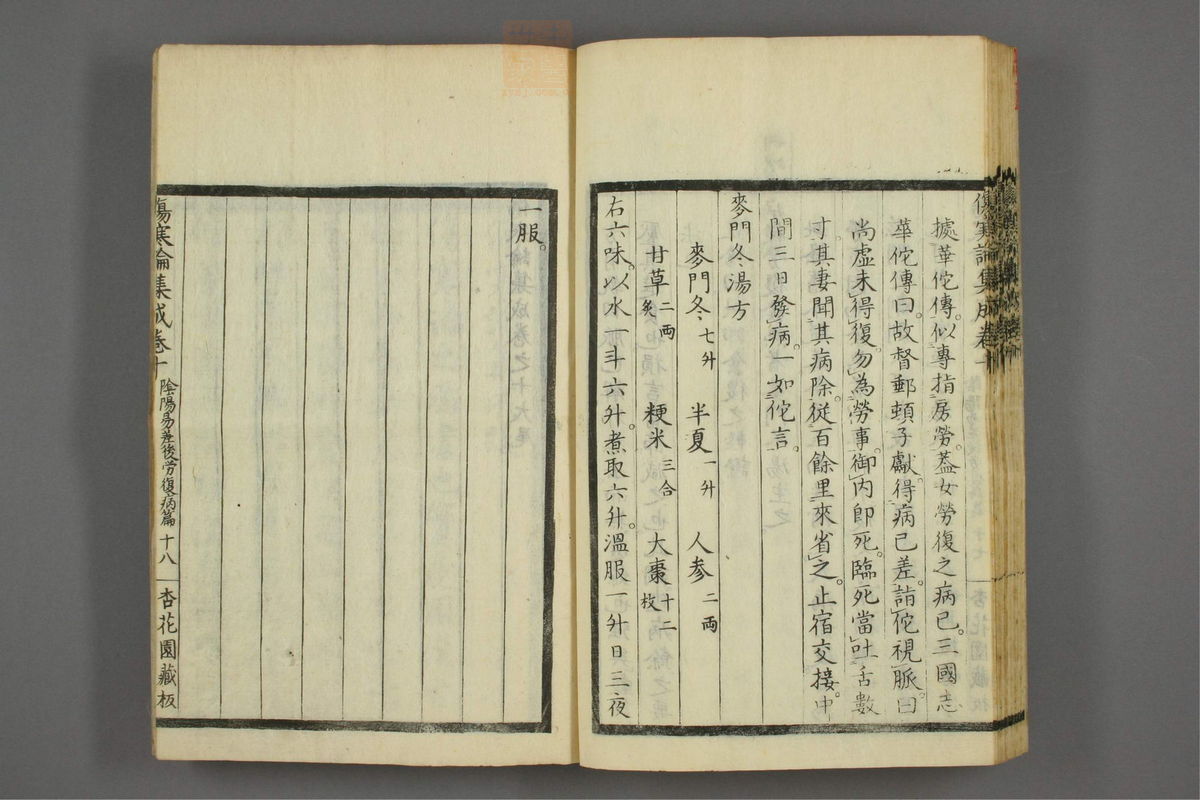 傷寒論集成卷十
據華佗傳。似專指房勞。蓋女勞復之病已。三國志
華佗傳曰。故督郵頓子獻。得病已差。詣佗視脈。曰
尚虛未得復。勿為勞事。御內即死。臨死當吐舌數
寸其妻聞其病除。從百餘里來省之。止宿交接。中
間三日發病。一如佗言。
麥門冬湯方
麥門冬七升 半夏一升 人參二兩
甘草二兩炙 粳米三合 大棗十二枚
右六味。以水一斗六升。煮取六升。溫服一升日三夜
一服。
傷寒論集成卷十 陰陽易差後勞復病篇 十八 杏花園藏板